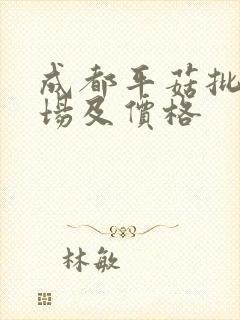 成都平菇批
場及價格
林敏